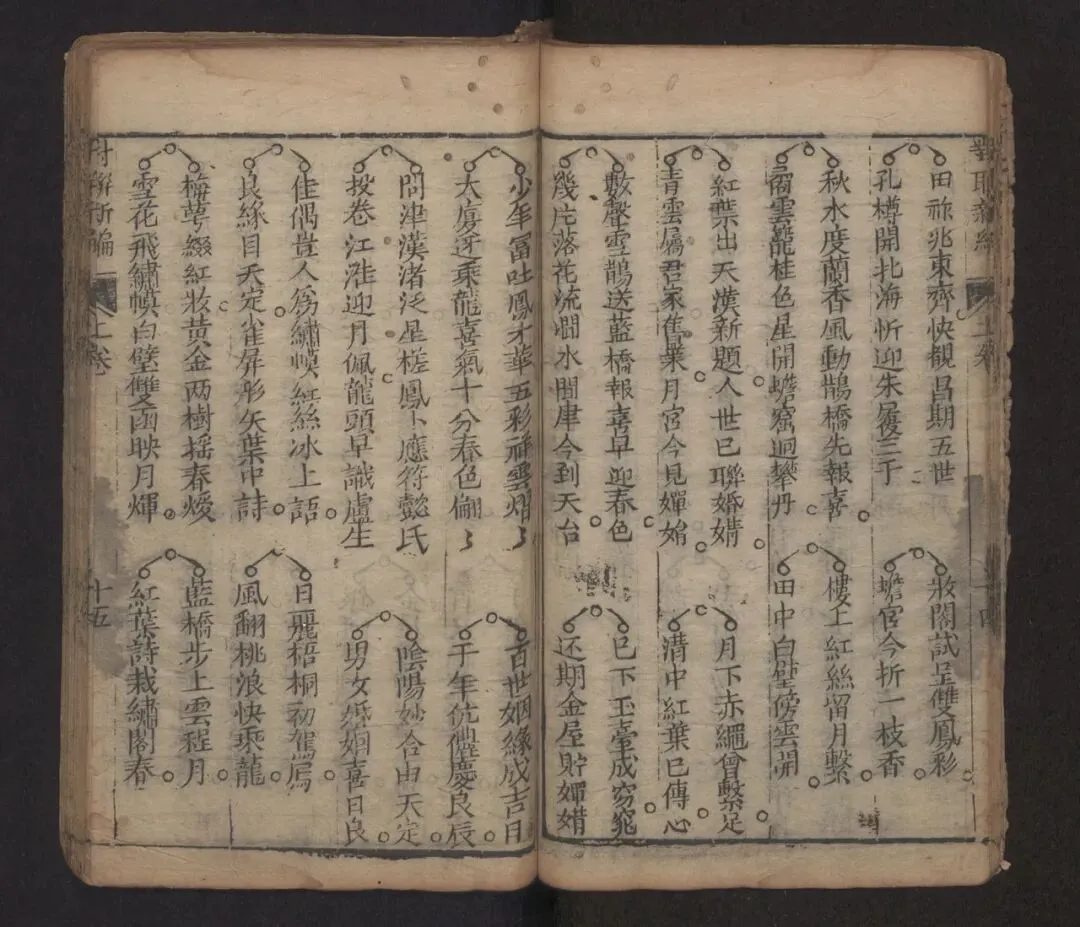 田祚兆東齊快覩昌期五世
孔樽開北海忻迎朱履三千
妝閣試呈雙鳳彩
蟾宮今折一枝香
秋水度蘭香風動鵲橋先報喜
雲籠桂色星開蟾窟迥攀丹
樓上紅絲留月繫
田中白璧傍雲開
紅葉出天漢新題人世已聯婚媾
青雲屬君家舊業月宮今見嬋娟
月下赤繩曾繫足
溝中紅葉已傳心
數聲雪鵲送藍橋報喜早迎春色
幾片落花流澗水問津今到天台
已下玉臺成窈窕
还期金屋貯嬋婧
少年冨吐鳳才華五彩祥雲熠〻
大廈迓乘龍喜氣十分春色俪〻
百世姻緣成吉日
千年伉儷慶良辰
問津漢渚泛星槎鳳卜應符懿氏
投卷江淮迎月佩龍頭早識盧生
陰陽妙合由天定
男女婚姻喜日良
佳偶豈人為繡幙紅絲冰上語
良緣自天定雀屏形矢葉中詩
日麗梧桐初駕鳳
風翻桃浪快乘龍
梅萼綴紅妝黃金两樹摇春煖
雪花飛繡幙白璧雙函映月輝
藍橋步上雲程月
紅葉詩栽繡閣春
對聯新編
上卷
十五